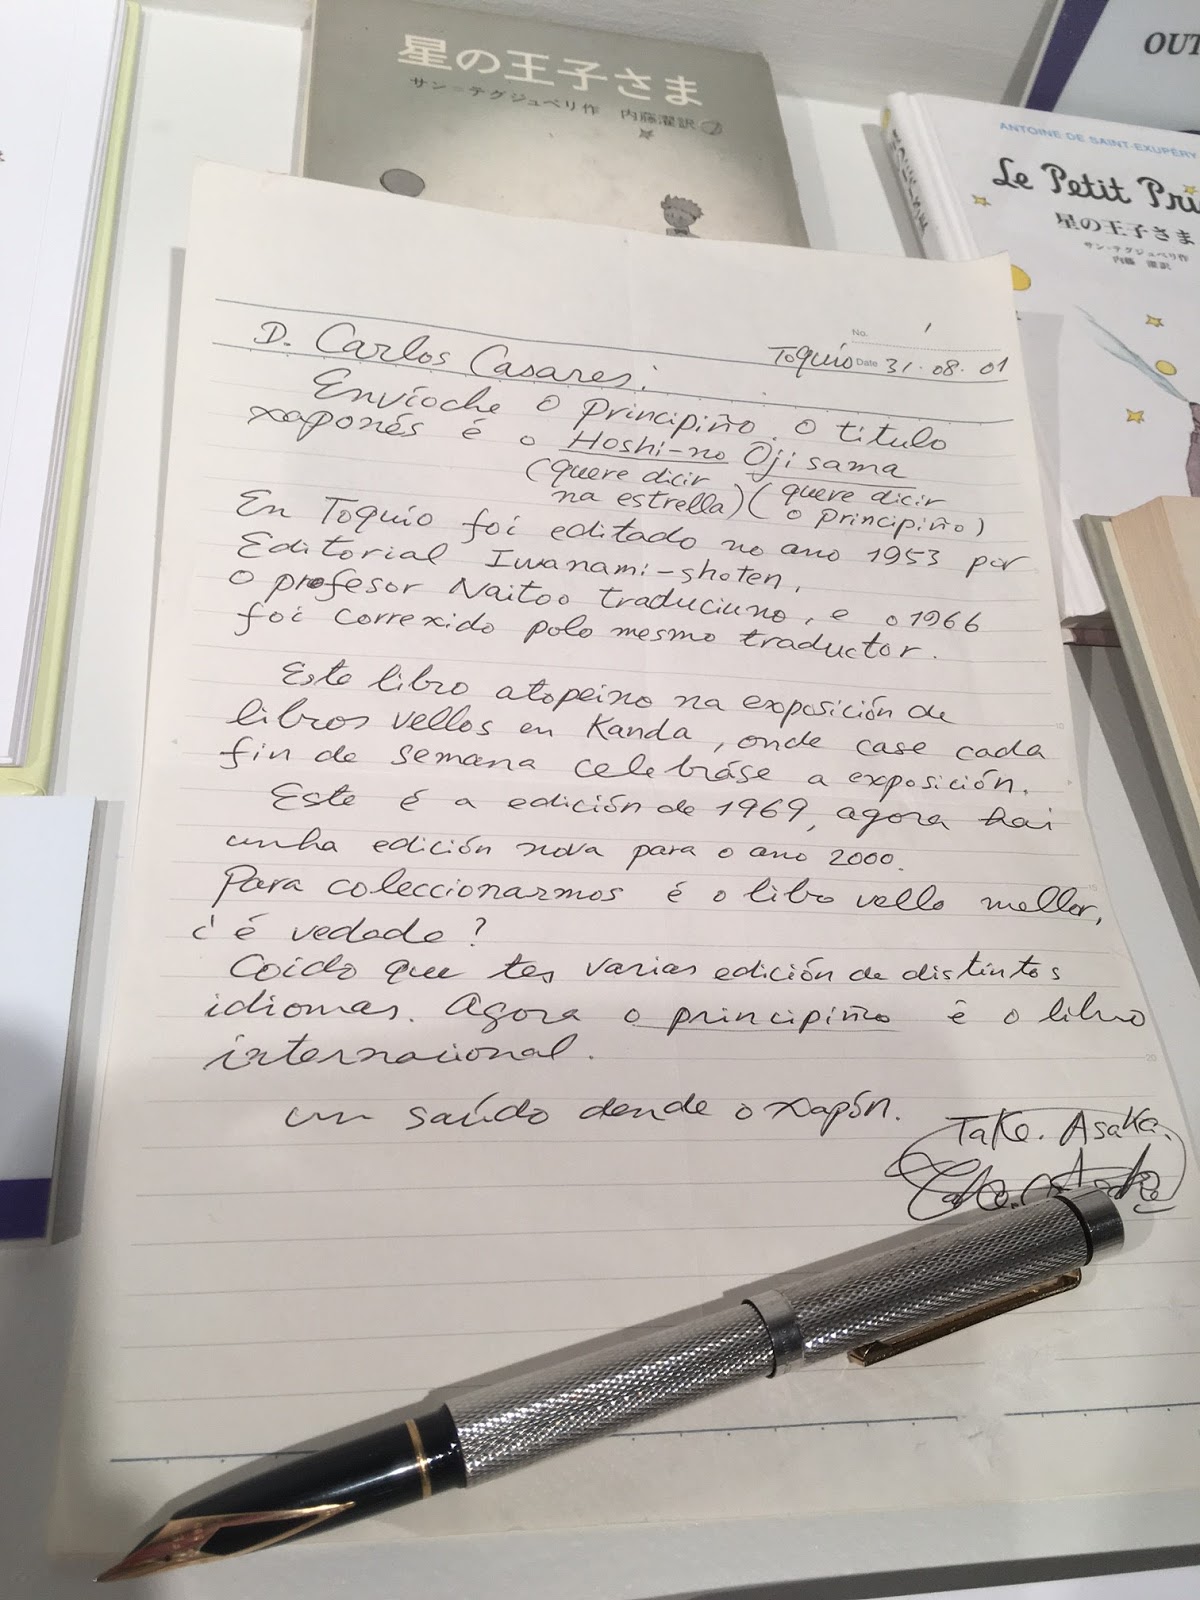 星の王子さま
サン=テグジュペリ作 内藤濯訳
OUT
ANTOINE DE SAINT-EXUPÉRY
Le Petit Pri
星の王子さま
サン=テグジュペリ作
内藤 濯訳
No. 1
D. Carlos Casares:
Toquio Date 31.08.01
Envíoche o principiño. o titulo
xaponés é o Hoshi-no Oji sama
(quere dicir na estrella) (quere dicir o principiño)
En Toquio foi editado no ano 1953 por
Editorial Iwanami-shoten,
o profesor Naitoo traduciuno, e o 1966
foi correxido polo mesmo traductor.
Este libro atopeino na exposición de
libros vellos en Kanda, onde case cada
fin de semana celebráse a exposición.
Este é a edición de 1969, agora hai
unha edición nova para o ano 2000.
Para coleccionarmos é o libro vello mellor,
¿ é vedade?
Coido que tes varias edición de distintos
idiomas. Agora o principiño é o libro
internacional.
un saúdo dende o xapón.
Take. Asaka.